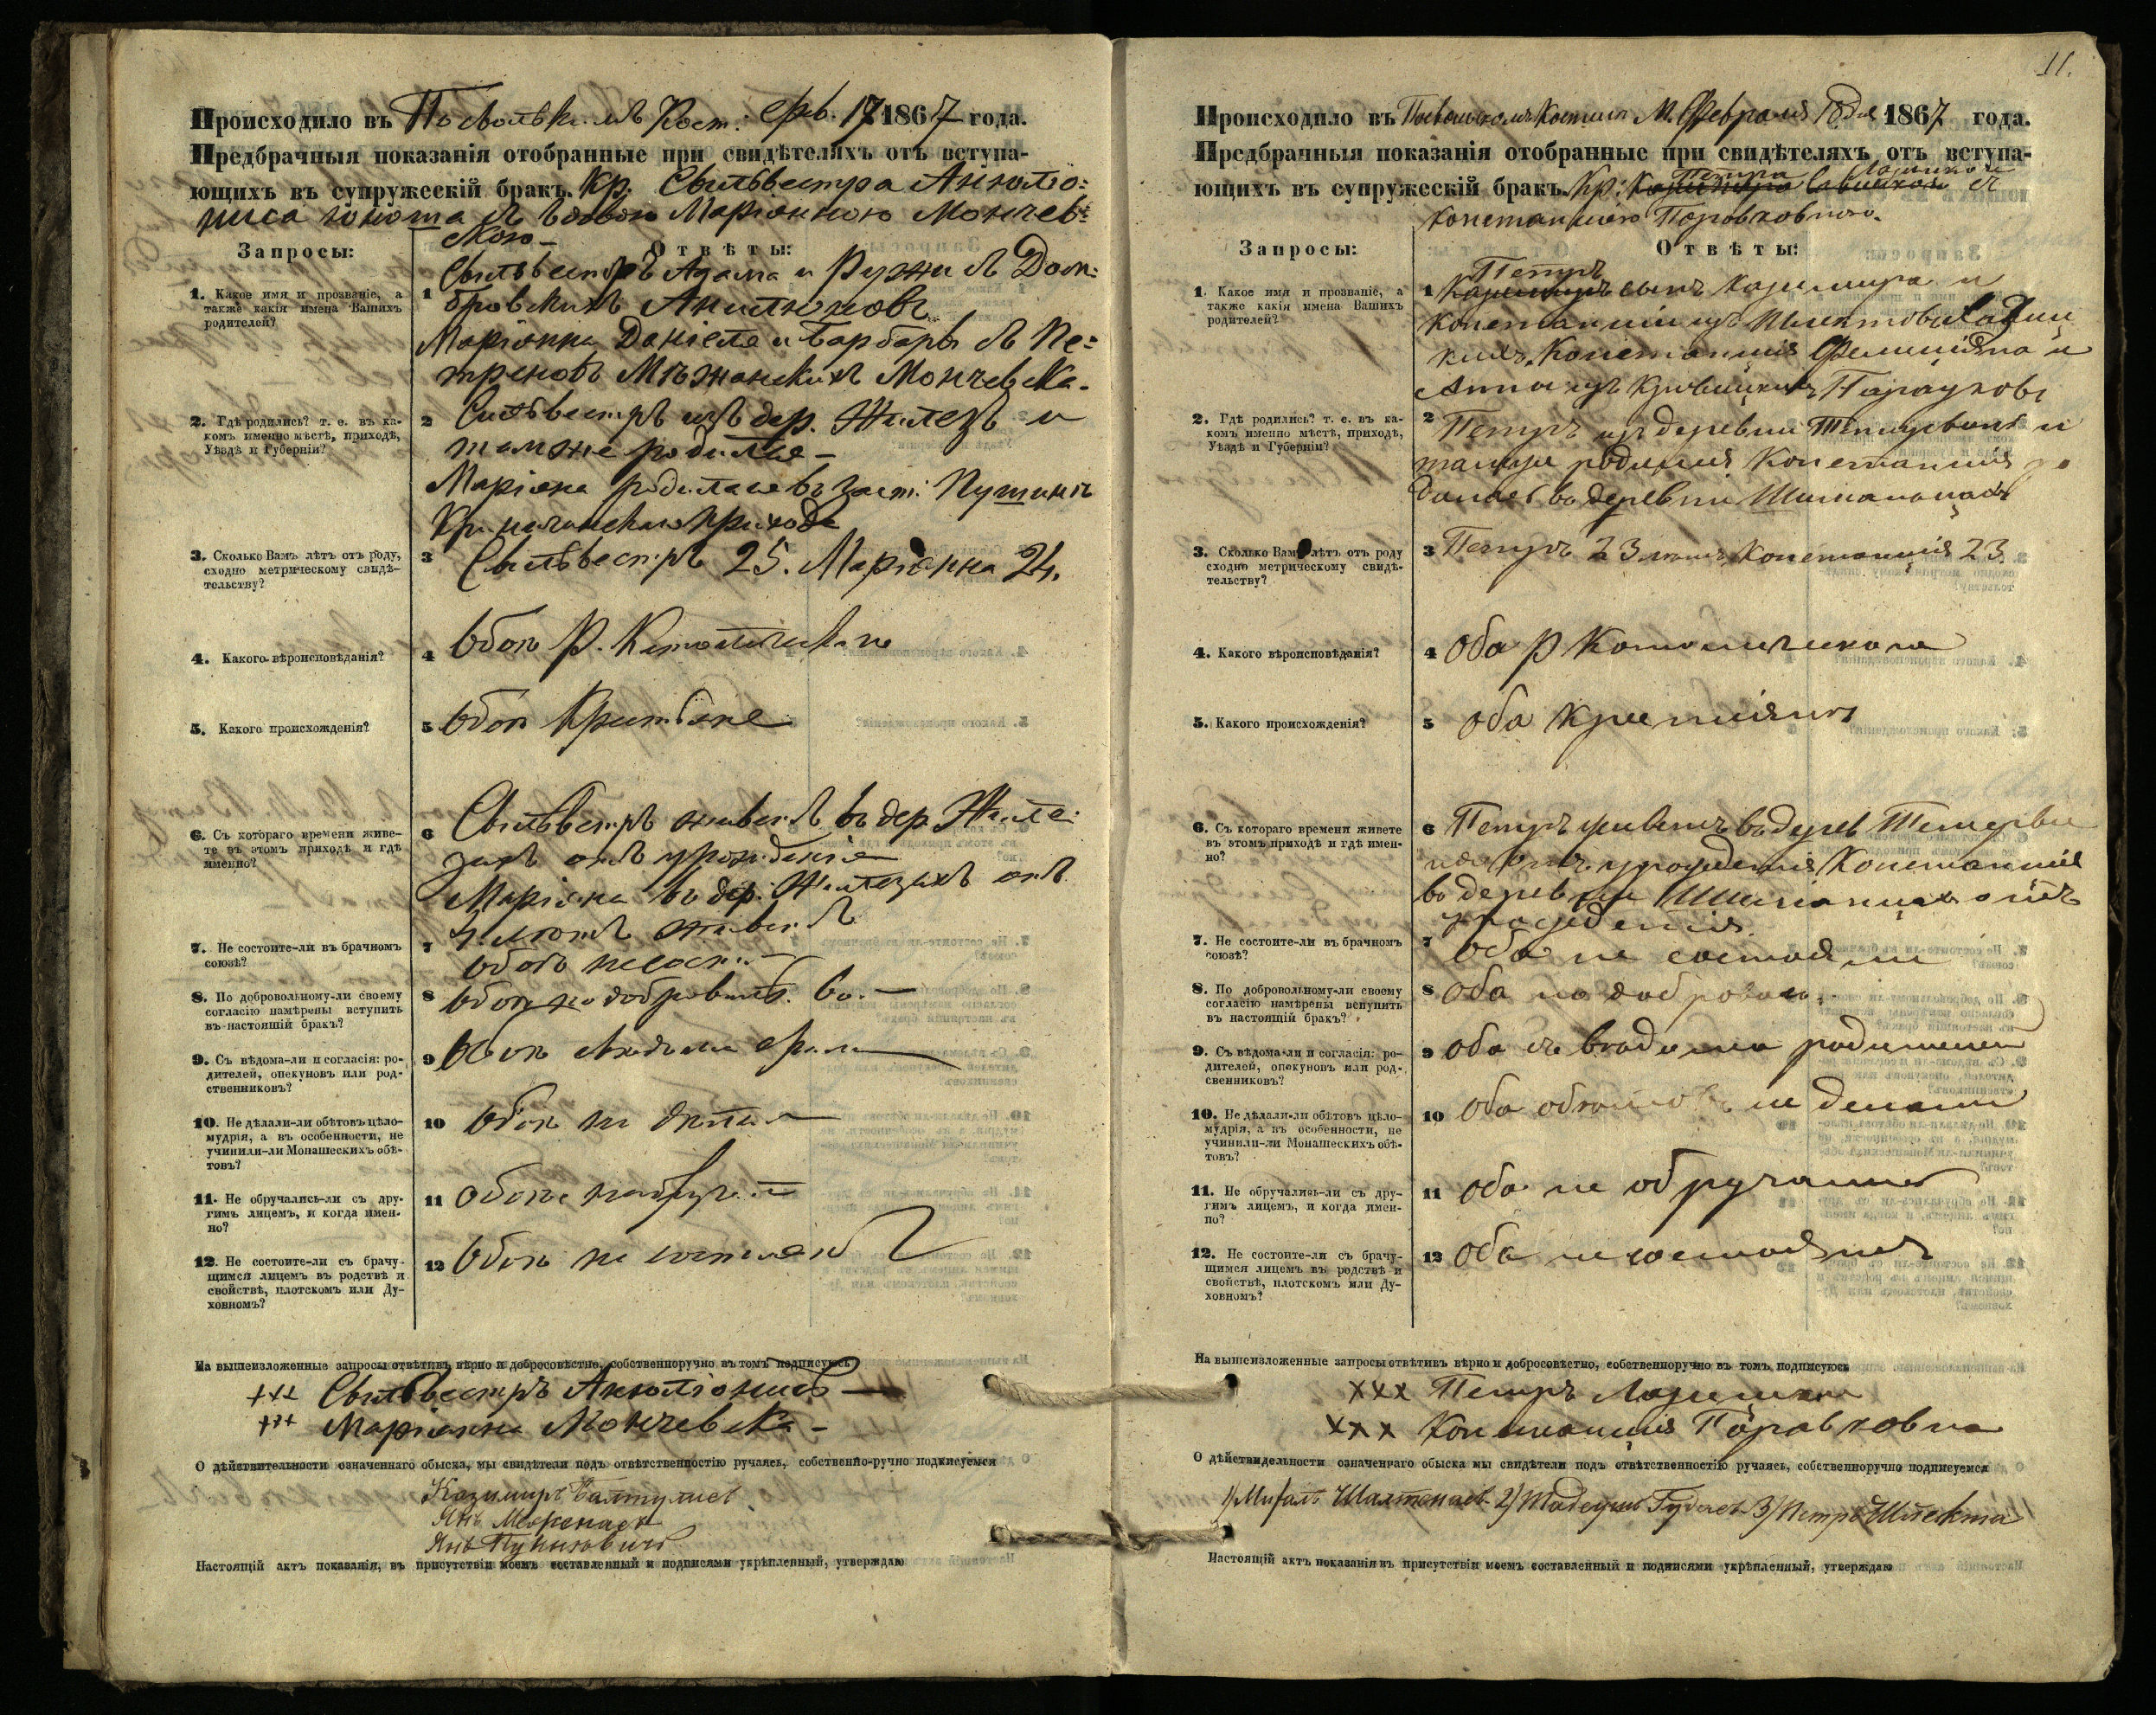 Происходило въ Посвольскомъ Кост: Фев. 17 1867 года.
Предбрачныя показанія отобранные при свидѣтеляхъ отъ вступа-
ющихъ въ супружескій бракъ. Кр. Сыльвестра Анюліо-
ниса юноша съ вдовою Маріанною Мончев-
скою
Запросы:
Отвѣты:
1. Какое имя и прозваніе, а
также какія имена Вашихъ
родителей?
1 Сыльвестръ Адама и Рузжи съ Дом-
бровскихъ Анилюновъ
Маріанна Даніеля и Барбары съ Пе-
треновъ Мѣжанскихъ Мончевска
2. Гдѣ родились? т. е. въ ка-
комъ именно мѣстѣ, приходѣ,
Уѣздѣ и Губерніи?
2 Сильвестръ изъ дер. и
тамже родился
Маріана родилась въ заст:
прихода
3. Сколько Вамъ лѣтъ отъ роду,
сходно метрическому свидѣ-
тельству?
3 Сыльвестръ 25. Маріанна 24.
4. Какого вѣроисповѣданія?
4 Обоя Р. Католическаго
5. Какого происхожденія?
5 Обоя Кристьяне
6. Съ котораго времени живе-
те въ этомъ приходѣ и гдѣ
именно?
6 Сыльвестръ живетъ въ дер Жиле-
захъ отъ урожденія
Маріана въ дер. Жилезахъ отъ
живетъ
7. Не состоите-ли въ брачномъ
союзѣ?
7 обоя несост.
8. По добровольному-ли своему
согласію намѣрены вступить
въ настоящій бракъ?
8 обоя по добровол. во.
9. Съ вѣдома-ли и согласія: ро-
дителей, опекуновъ или род-
ственниковъ?
9 Обоя
10. Не дѣлали-ли обѣтовъ цѣло-
мудрія, а въ особенности, не
учинили-ли Монашескихъ обѣ-
товъ?
10 Обоя не дѣлал
11. Не обручались-ли съ дру-
гимъ лицемъ, и когда имен-
но?
11 обоя
12. Не состоите-ли съ брачу-
щимся лицемъ въ родствѣ и
свойствѣ, плотскомъ или Ду-
ховномъ?
12 Обоя не состоятъ
На вышеизложенные запросы отвѣтивъ вѣрно и добросовѣстно, собственноручно въ томъ подписуюсь
+++ Сыльвестръ Анюліонисъ
+++ Маріанна Мончевска
О дѣйствительности означеннаго обыска, мы свидѣтели подъ отвѣтственностію ручаясь, собственно-ручно подписуемся
Казимиръ Балтулисъ
Янъ
Янъ
Настоящій актъ показанія, въ присутствіи моемъ составленный и подписями укрѣпленный, утверждаю
11.
Происходило въ Посвольскомъ Костел М. Февраля 18 дня 1867 года.
Предбрачныя показанія отобранные при свидѣтеляхъ отъ вступа-
ющихъ въ супружескій бракъ Кр: Петра съ
Констанціею Поравковною
Запросы:
Отвѣты:
1. Какое имя и прозваніе, а
также какія имена Вашихъ
родителей?
1 Петръ сынъ Казимира и
Констанціи изъ
Констанція Фелиціяна и
Анны изъ
2. Гдѣ родились? т. е. въ ка-
комъ именно мѣстѣ, приходѣ,
Уѣздѣ и Губерніи?
2 Петръ изъ деревни и
родился Констанція ро
дилась въ деревни
3. Сколько Вамъ лѣтъ отъ роду
сходно метрическому свидѣ-
тельству?
3 Петръ 23 лѣтъ Констанція 23
4. Какого вѣроисповѣданія?
4 Оба Р Католическаго
5. Какого происхожденія?
5 оба крестіяны
6. Съ котораго времени живете
въ этомъ приходѣ и гдѣ имен-
но?
6 Петръ живетъ въ дерев
отъ урожденія Констанція
въ деревни отъ
урожденія.
7. Не состоите-ли въ брачномъ
союзѣ?
7 оба не состояли
8. По добровольному-ли своему
согласію намѣрены вступить
въ настоящій бракъ?
8 Оба по доброволь.
9. Съ вѣдома-ли и согласія: ро-
дителей, опекуновъ или род-
свенниковъ?
9 оба съ вѣдома родителей
10. Не дѣлали-ли обѣтовъ цѣло-
мудрія, а въ особенности, не
учинили-ли Монашескихъ обѣ-
товъ?
10 оба обѣтовъ не делали
11. Не обручались-ли съ дру-
гимъ лицемъ, и когда имен-
но?
11 оба не обручались
12. Не состоите-ли съ брачу-
щимся лицемъ въ родствѣ и
свойствѣ, плотскомъ или Ду-
ховномъ?
12 Оба не состоятся
На вышеизложенные запросы отвѣтивъ вѣрно и добросовѣстно, собственноручно въ томъ подписуюсь
××× Петръ
××× Констанція Поравковна
О дѣйствидельности означеннаго обыска мы свидѣтели подъ отвѣтственностію ручаясь, собственноручно подписуемся
1) Михалъ 2) Тадеушъ 3) Петръ Шлекта
Настоящій актъ показанія въ присутствіи моемъ составленный и подписями укрѣпленный, утверждаю